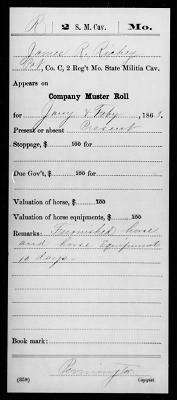 R 2 S. M. Cav. Mo.
James R. Richey
Pvt, Co. C, 2 Reg't Mo. State Militia Cav.
Appears on
Company Muster Roll
for Jany & Feby, 186
Present or absent Present
Stoppage, $ 100 for
Due Gov't, $ 100 for
Valuation of horse, $ 100
Valuation of horse equipments, $ 100
Remarks: Furnished horse
and horse equipments
10 days.
Book mark:
Pennington
(358) Copyist.